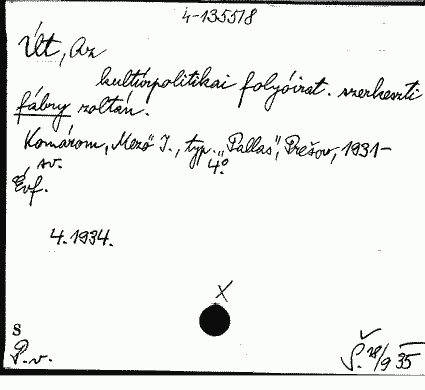 4-13551/8
Út, Az
kultúrpolitikai folyóirat. szerkeszti
fábry zoltán.
Komárom, Mező I., typ. „Pallas", Prešov, 1931-
sv. 4°
Évf.
4.1934.
X
S
P.v.
Š. 28/9 35